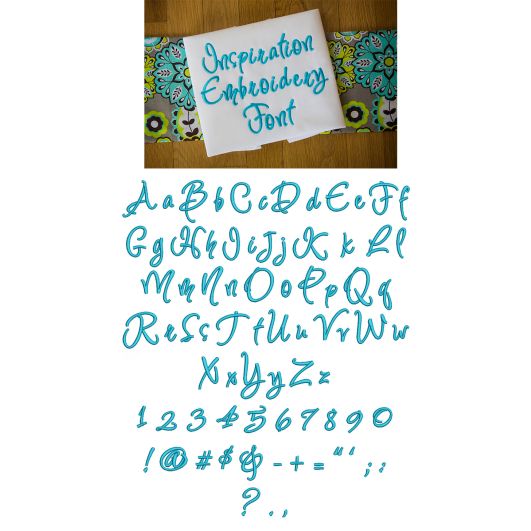 Inspiration
Embroidery
Font
A a B b C c D d E e F f
G g H h I i J j K k L l
M m N n O o P p Q q
R r S s T t U u V v W w
X x Y y Z z
1 2 3 4 5 6 7 8 9 0
! @ # $ & - + = " ' ; :
? . ,